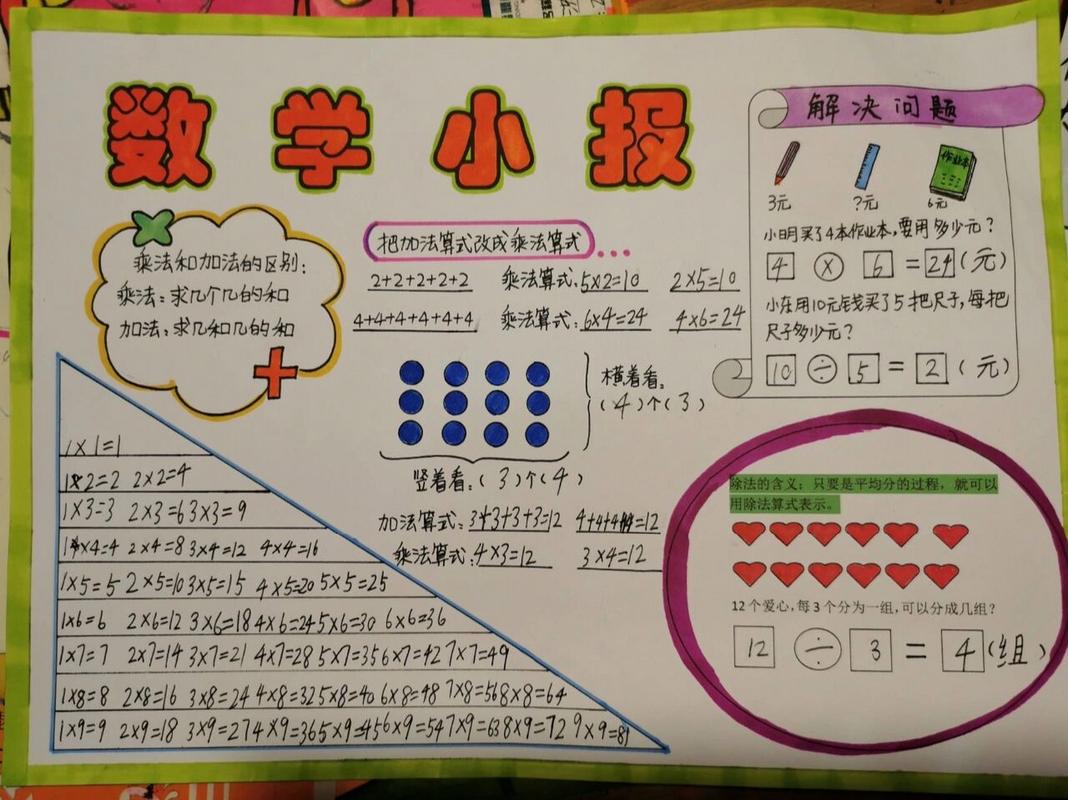 数学小报
乘法和加法的区别:
乘法:求几个几的和
加法:求几和几的和
把加法算式改成乘法算式...
2+2+2+2+2 乘法算式:5×2=10 2×5=10
4+4+4+4+4+4 乘法算式:6×4=24 4×6=24
横着看:
(4)个(3)
竖着看:(3)个(4)
加法算式:3+3+3+3=12 4+4+4=12
乘法算式:4×3=12 3×4=12
解决问题
作业本
3元 ?元 6元
小明买了4本作业本,要用多少元?
4 × 6 = 24(元)
小东用10元钱买了5把尺子,每把
尺子多少元?
10 ÷ 5 = 2(元)
除法的含义:只要是平均分的过程,就可以
用除法算式表示。
12个爱心,每3个分为一组,可以分成几组?
12 ÷ 3 = 4(组)
1×1=1
1×2=2 2×2=4
1×3=3 2×3=6 3×3=9
1×4=4 2×4=8 3×4=12 4×4=16
1×5=5 2×5=10 3×5=15 4×5=20 5×5=25
1×6=6 2×6=12 3×6=18 4×6=24 5×6=30 6×6=36
1×7=7 2×7=14 3×7=21 4×7=28 5×7=35 6×7=42 7×7=49
1×8=8 2×8=16 3×8=24 4×8=32 5×8=40 6×8=48 7×8=56 8×8=64
1×9=9 2×9=18 3×9=27 4×9=36 5×9=45 6×9=54 7×9=63 8×9=72 9×9=81